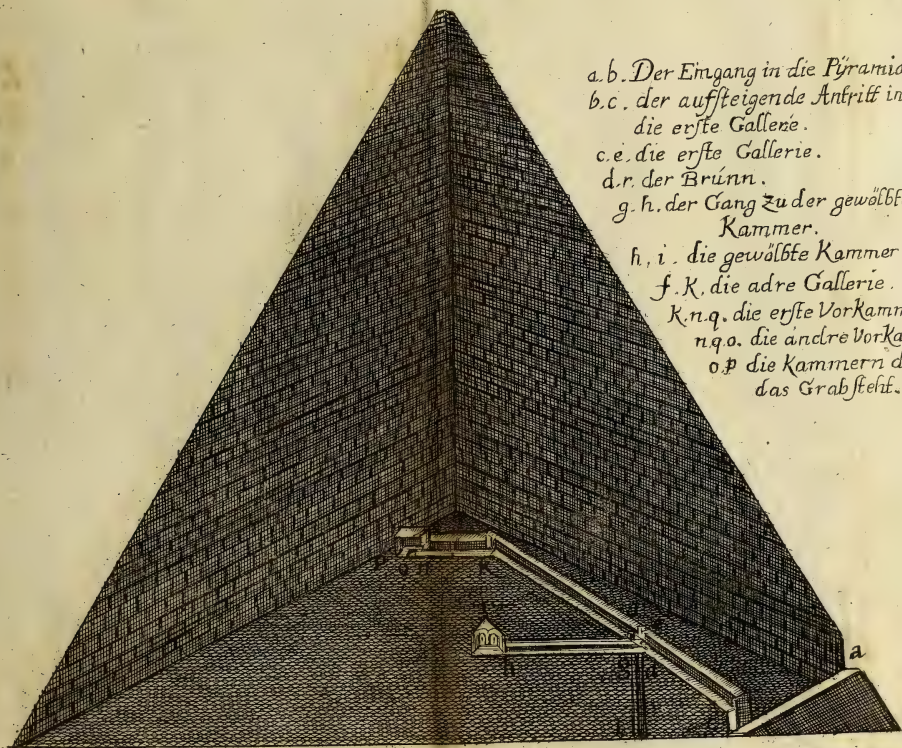 a.b. Der Eingang in die Pÿramid
b.c. der auffsteigende Antritt in
die erste Gallerie.
c.e. die erste Gallerie.
d.r. der Brúnn.
g.h. der Gang zu der gewölbt
Kammer.
h, i. die gewölbte Kammer
f.K. die adre Gallerie.
K.n.q. die erste Vorkamm
n.q.o. die andre Vorka
o.p die Kammern d
das Grab steht.
a
K
h
g d